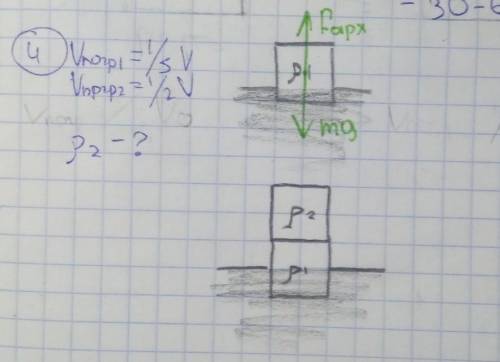 - 30-6
4 Vпогр1 = 1/5 V
Vпргр2 = 1/2 V
ρ2 - ?
Fарх
ρ1
mg
ρ2
ρ1